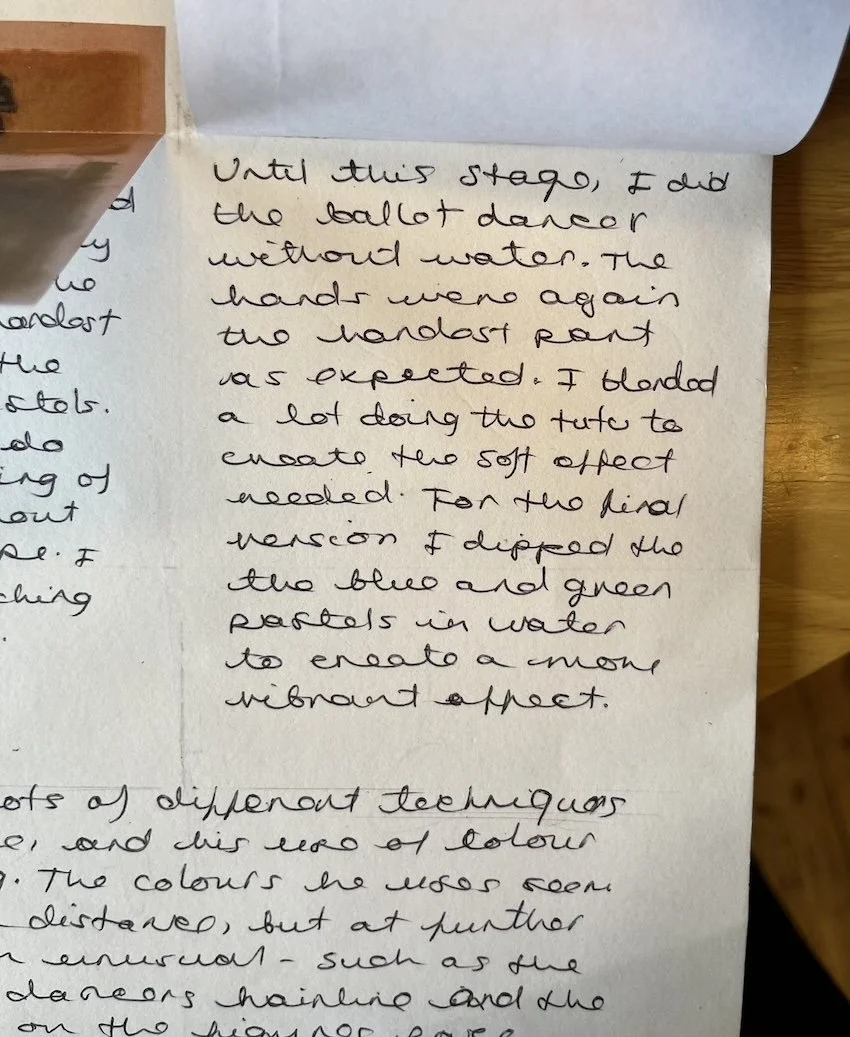 Until this stage, I did
the ballet dancer
without water. The
hands were again
the hardest part
as expected. I blended
a lot doing the tutu to
create the soft effect
needed. For the final
version I dipped the
the blue and green
pastels in water
to create a more
vibrant effect.
hardest
the
stels.
do
ing of
out
pe. I
ching
ots of different techniques
e, and his use of colour
g. The colours he uses seem
distance, but at further
n unusual - such as the
dancers hairline and the
on the figures